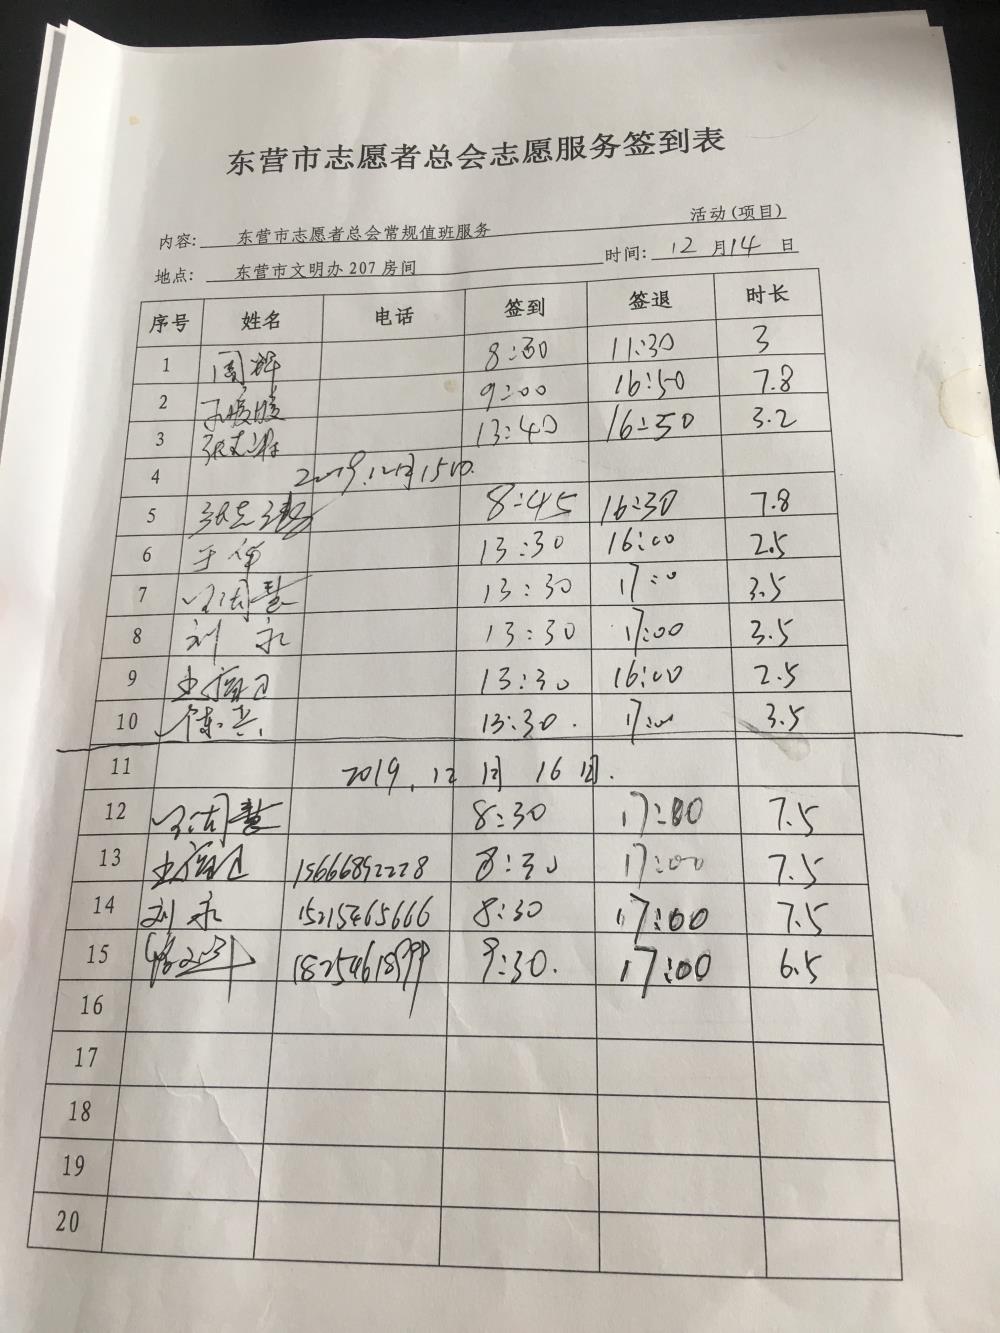 东营市志愿者总会志愿服务签到表
内容: 东营市志愿者总会常规值班服务 活动(项目)
地点: 东营市文明办 207 房间 时间: 12 月 14 日
序号 姓名 电话 签到 签退 时长
1 周 8:30 11:30 3
2 9:00 16:50 7.8
3 张 13:40 16:50 3.2
4 2019.12月15日.
5 张志 8:45 16:30 7.8
6 于伟 13:30 16:00 2.5
7 慧 13:30 17:00 3.5
8 刘永 13:30 17:00 3.5
9 13:30 16:00 2.5
10 陈兵 13:30. 17:00 3.5
11 2019.12月16日.
12 慧 8:30 17:00 7.5
13 15666892228 8:30 17:00 7.5
14 刘永 15215465666 8:30 17:00 7.5
15 18254618999 9:30. 17:00 6.5
16
17
18
19
20